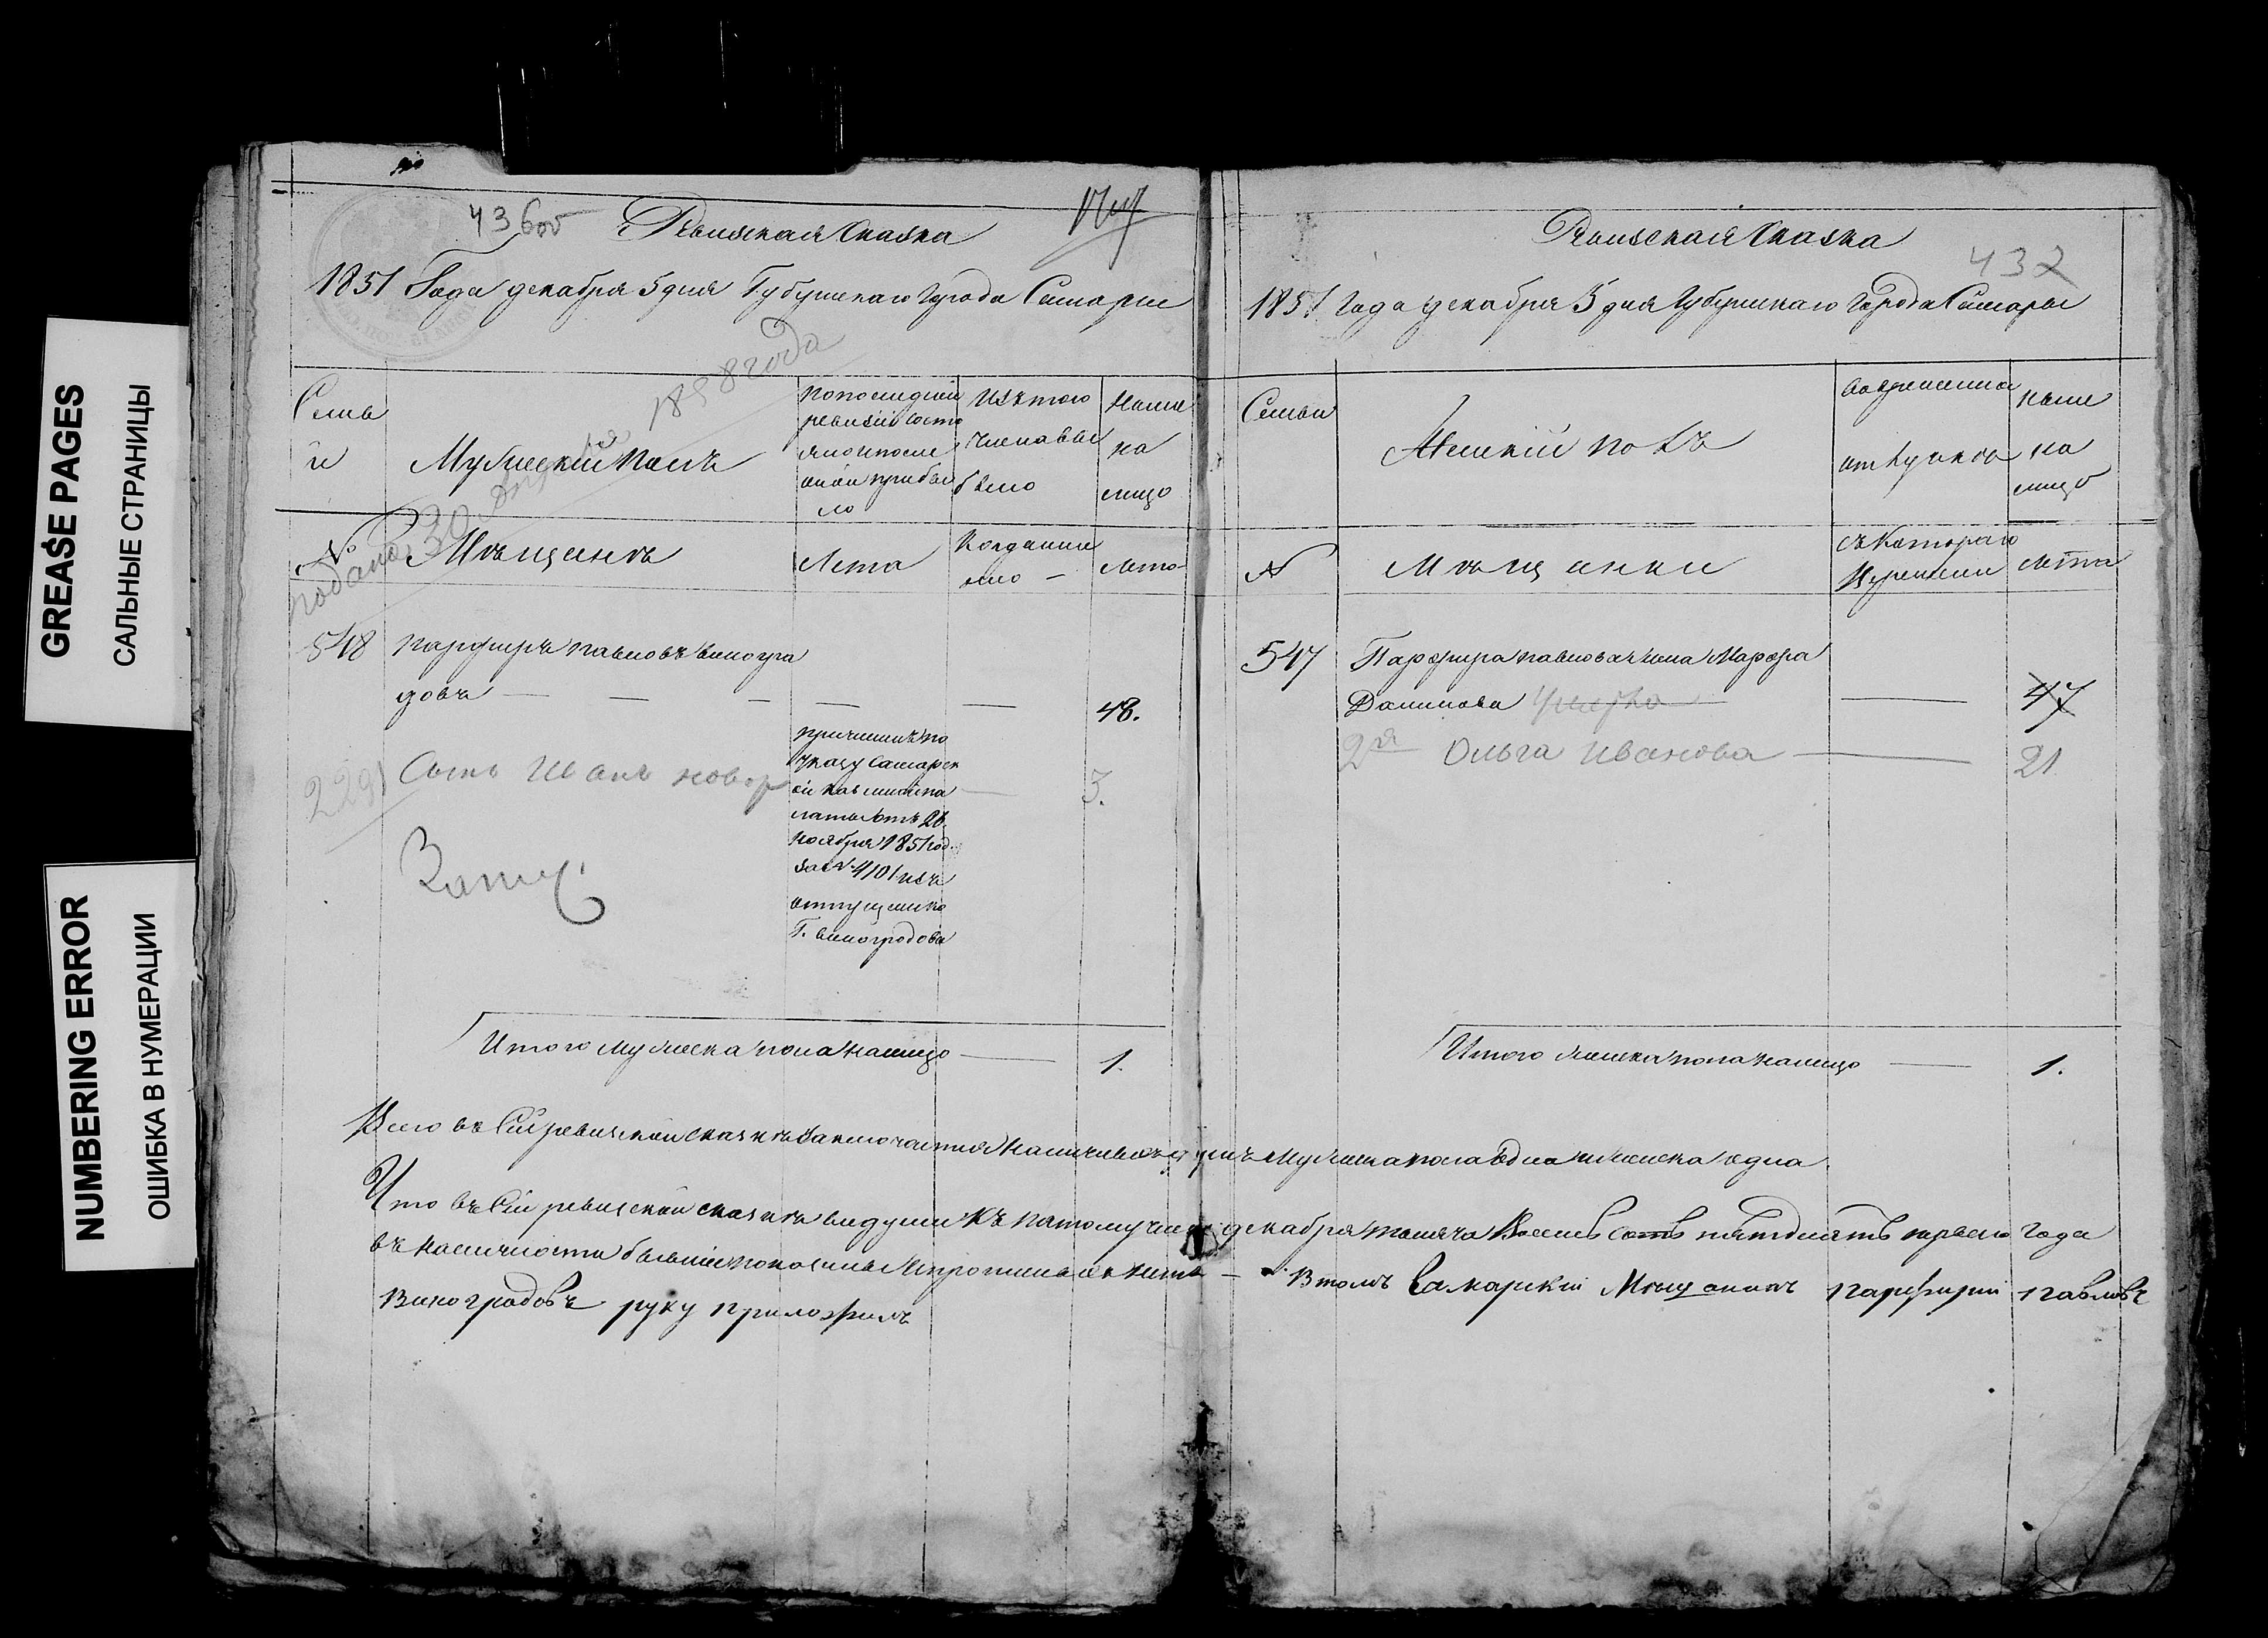 GREASE PAGES
САЛЬНЫЕ СТРАНИЦЫ
NUMBERING ERROR
ОШИБКА В НУМЕРАЦИИ
43 об
Ревизская Сказка
1851 Года декабря 5 дня Губернскаго Города Самары
подана 30 Апреля 1858 года
Семьи
Мужеский полъ
По последней
ревизии состо
яло и после
оной прибы
ло
Изъ того
числа вы
было
Ныне
на
лицо
№
Мещанъ
Лета
Когда именно
Лета
548
Парфиръ Павловъ Виногра
довъ
48.
причисленъ по
указу Самарск
ой Казенной па
латы отъ 26
ноября 1851 год.
за № 4101 изъ
отпущенико
Г. Виноградова
229
Сынъ Иванъ новор
3.
Итого мужеска пола налицо
1.
Ревизская Сказка
432
1851 Года декабря 5 дня Губернскаго Города Самары
Семьи
Женский полъ
Во временной
отлучке
Ныне
на
лицо
№
Мещанки
Съ котораго
времени
Лета
547
Парфира Павлова жена Марфа
Данилова умерла
47
2я Ольга Иванова
21
Итого женска пола налицо
1.
Всего въ сей ревизской сказке заключается наличныхъ душъ мужеска пола одна и женска одна.
Что въ сей ревизской сказке все души къ пятому числу декабря тысяча восемь сотъ пятдесятъ перваго года
въ наличности бывшие показаны и пропущенныхъ нетъ – Втомъ Самарский Мещанинъ Парфирий Павловъ
Виноградовъ руку приложилъ